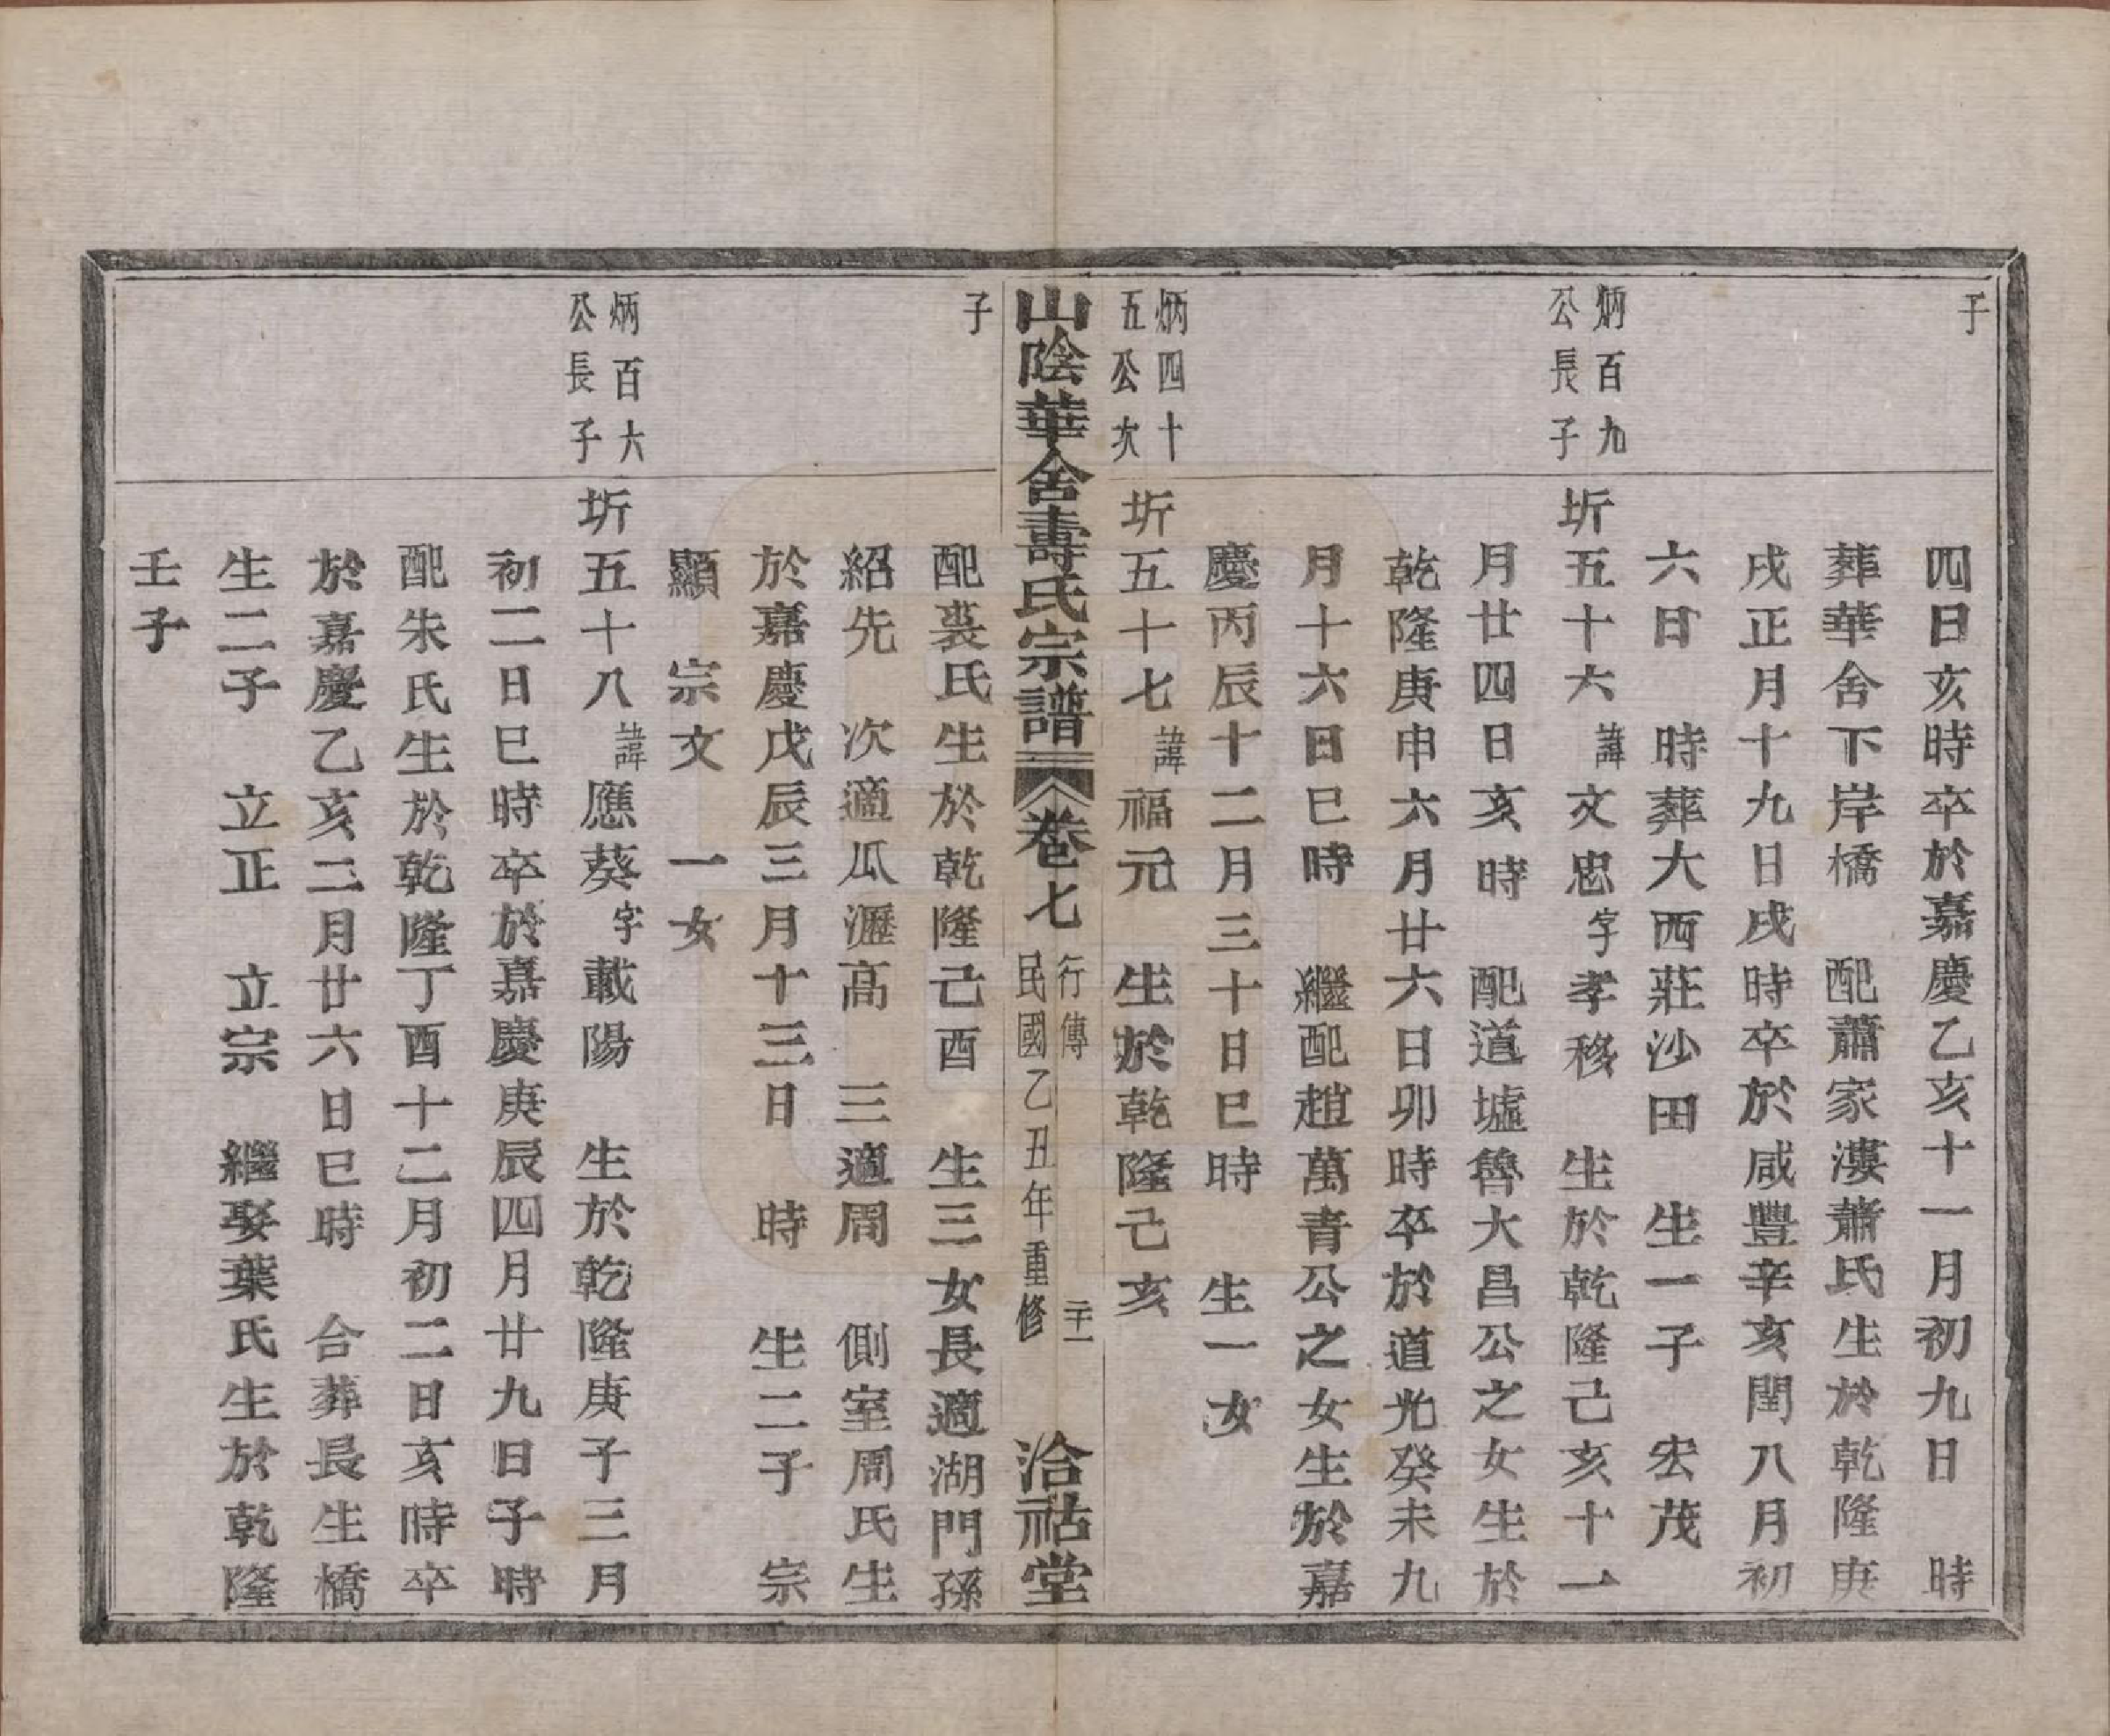 子
四日亥時卒於嘉慶乙亥十一月初九日 時
葬華舍下岸橋 配蕭家漊蕭氏生於乾隆庚
戌正月十九日戌時卒於咸豐辛亥閏八月初
六日 時葬大西莊沙田 生一子 宏茂
炳百九
公長子
圻五十六諱文忠字孝移 生於乾隆己亥十一
月廿四日亥時 配道墟魯大昌公之女生於
乾隆庚申六月廿六日卯時卒於道光癸未九
月十六日巳時 繼配趙萬青公之女生於嘉
慶丙辰十二月三十日巳時 生一女
炳四十
五公次
圻五十七諱福元 生於乾隆己亥
山陰華舍壽氏宗譜 卷七 行傳 民國乙丑年重修 二十一 洽祜堂
子
配裘氏生於乾隆己酉 生三女長適湖門孫
紹先 次適瓜瀝高 三適周 側室周氏生
於嘉慶戊辰三月十三日 時 生二子 宗
顯 宗文 一女
炳百六
公長子
圻五十八諱應葵字載陽 生於乾隆庚子三月
初二日巳時卒於嘉慶庚辰四月廿九日子時
配朱氏生於乾隆丁酉十二月初二日亥時卒
於嘉慶乙亥二月廿六日巳時 合葬長生橋
生二子 立正 立宗 繼娶葉氏生於乾隆
壬子